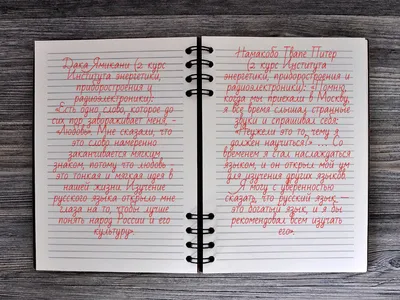 Дака Ямикани (2 курс
Института энергетики,
приборостроения и
радиоэлектроники):
«Есть одно слово, которое до
сих пор завораживает меня, –
«Любовь». Мне сказали, что
это слово намеренно
заканчивается мягким
знаком, потому что любовь –
это тонкая и мягкая идея в
нашей жизни. Изучение
русского языка открыло мне
глаза на то, чтобы лучше
понять народ России и его
культуру».
Намакобо Гвапе Питер
(2 курс Института
энергетики, приборостроения и
радиоэлектроники): «Помню,
когда мы приехали в Москву,
я все время слышал странные
звуки и спрашивал себя:
«Неужели это то, чему я
должен научиться?» ... Со
временем я стал наслаждаться
языком, и он открыл мой ум
для изучения других языков.
Я могу с уверенностью
сказать, что русский язык –
это богатый язык, и я бы
рекомендовал всем изучать
его».